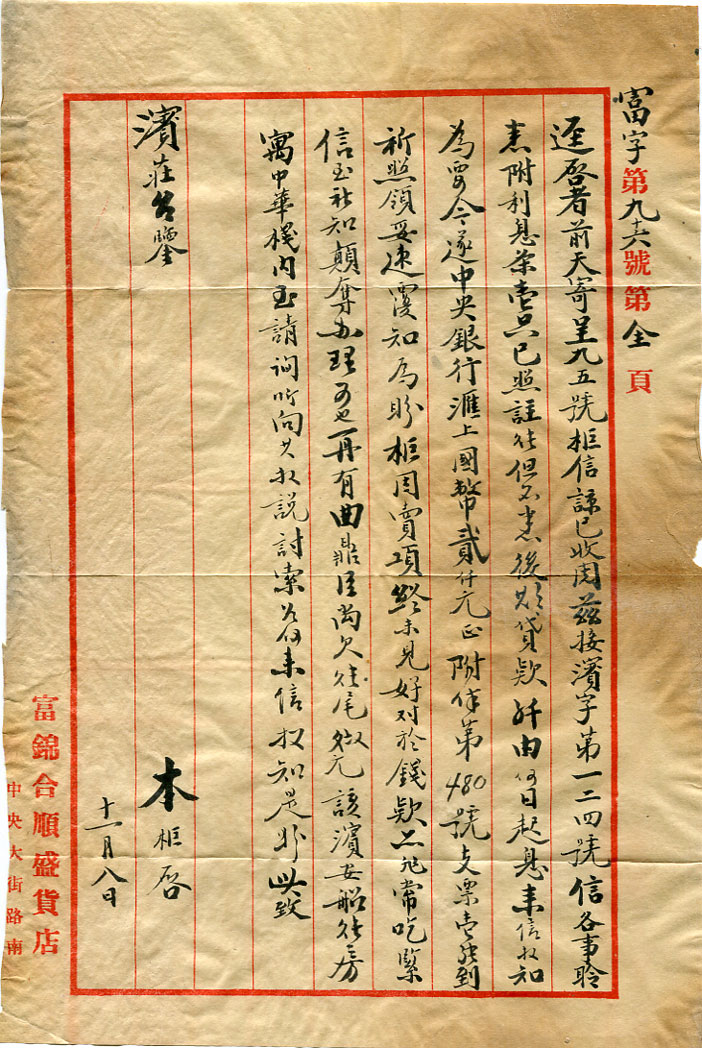 富字第九十六號第全頁
逕啓者前天寄呈九五號柜信諒已收閱茲接濱字第一二四號信各事聆
悉附利息條壹只已照註但不悉後期貸款由何日起息來信叔知
為要今遂中央銀行滙上國幣貳仟元正附第480號支票壹到
祈照領妥速覆知為盼柜周賣項終未見好对於錢款亦非常吃緊
信至祈知顛奪办理可也再有曲尚欠尾元該濱安船房
寓中華棧內至請詢所向其叔説討索為何來信叔知是盼此致
濱莊台鑒
本柜啓
十一月八日
富錦合順盛貨店
中央大街路南